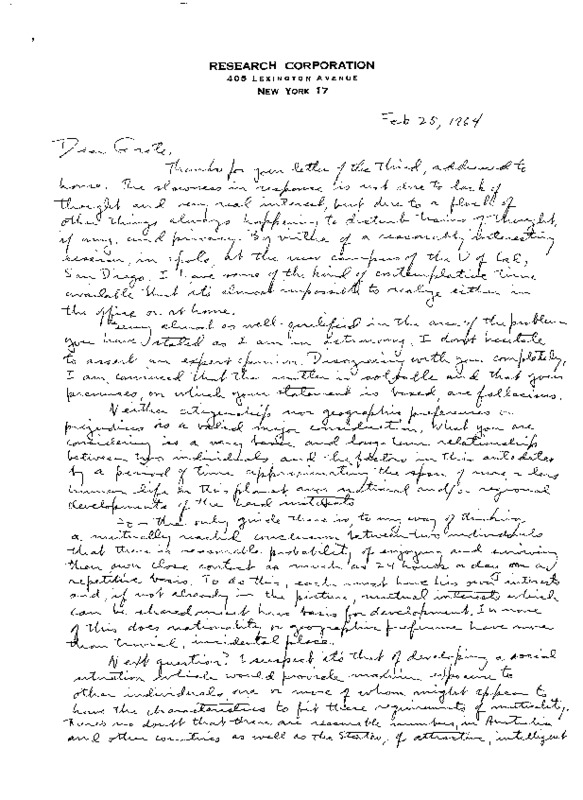 RESEARCH CORPORATION
405 LEXINGTON AVENUE
NEW YORK 17
Feb 25, 1964
Dear Grote,
Thanks for your letter of the Third, addressed to
home. The slowness in response is not due to lack of
thought and very real interest, but due to a flock of
other things always happening to disturb trains of thought,
if any, and privacy. By virtue of a reasonably interesting
session, in, at the new campus of the U of Cal,
San Diego, I have some of the kind of contemplative time
available that it's almost impossible to realize either in
the office or at home.
Being almost as well qualified in the area of the problem
you have stated as I am in astronomy, I don't hesitate
to assert an expert opinion. Disagreeing with you completely,
I am convinced that the matter is solvable and that your
premises, on which your statement is based, are fallacious.
Neither citizenship nor geographic preferences or
prejudices is a valid major consideration. What you are
considering is a very basic and long-term relationship
between two individuals and the factors in this antedates
by a period of time approximating the span of
human life on this planet any national and/or regional
developments of the
the only guide there is, to my way of thinking
a mutually reached conclusion between two individuals
that there is reasonable probability of enjoying and surviving
their own close contact as much as 24 hours a day on a
repetitive basis. To do this, each must have his own interests
and, if not already in the picture, mutual interests which
can be shared must have basis for development. In none
of this does nationality or geographic preference have more
than trivial, incidental place.
Next question? I suspect it's that of developing a social
situation which would provide maximum exposure to
other individuals, one or more of whom might appear to
have the characteristics to fit these requirements of mutuality.
There's no doubt that there are reasonable numbers, in Australia
and other countries as well as the States, of attractive, intelligent